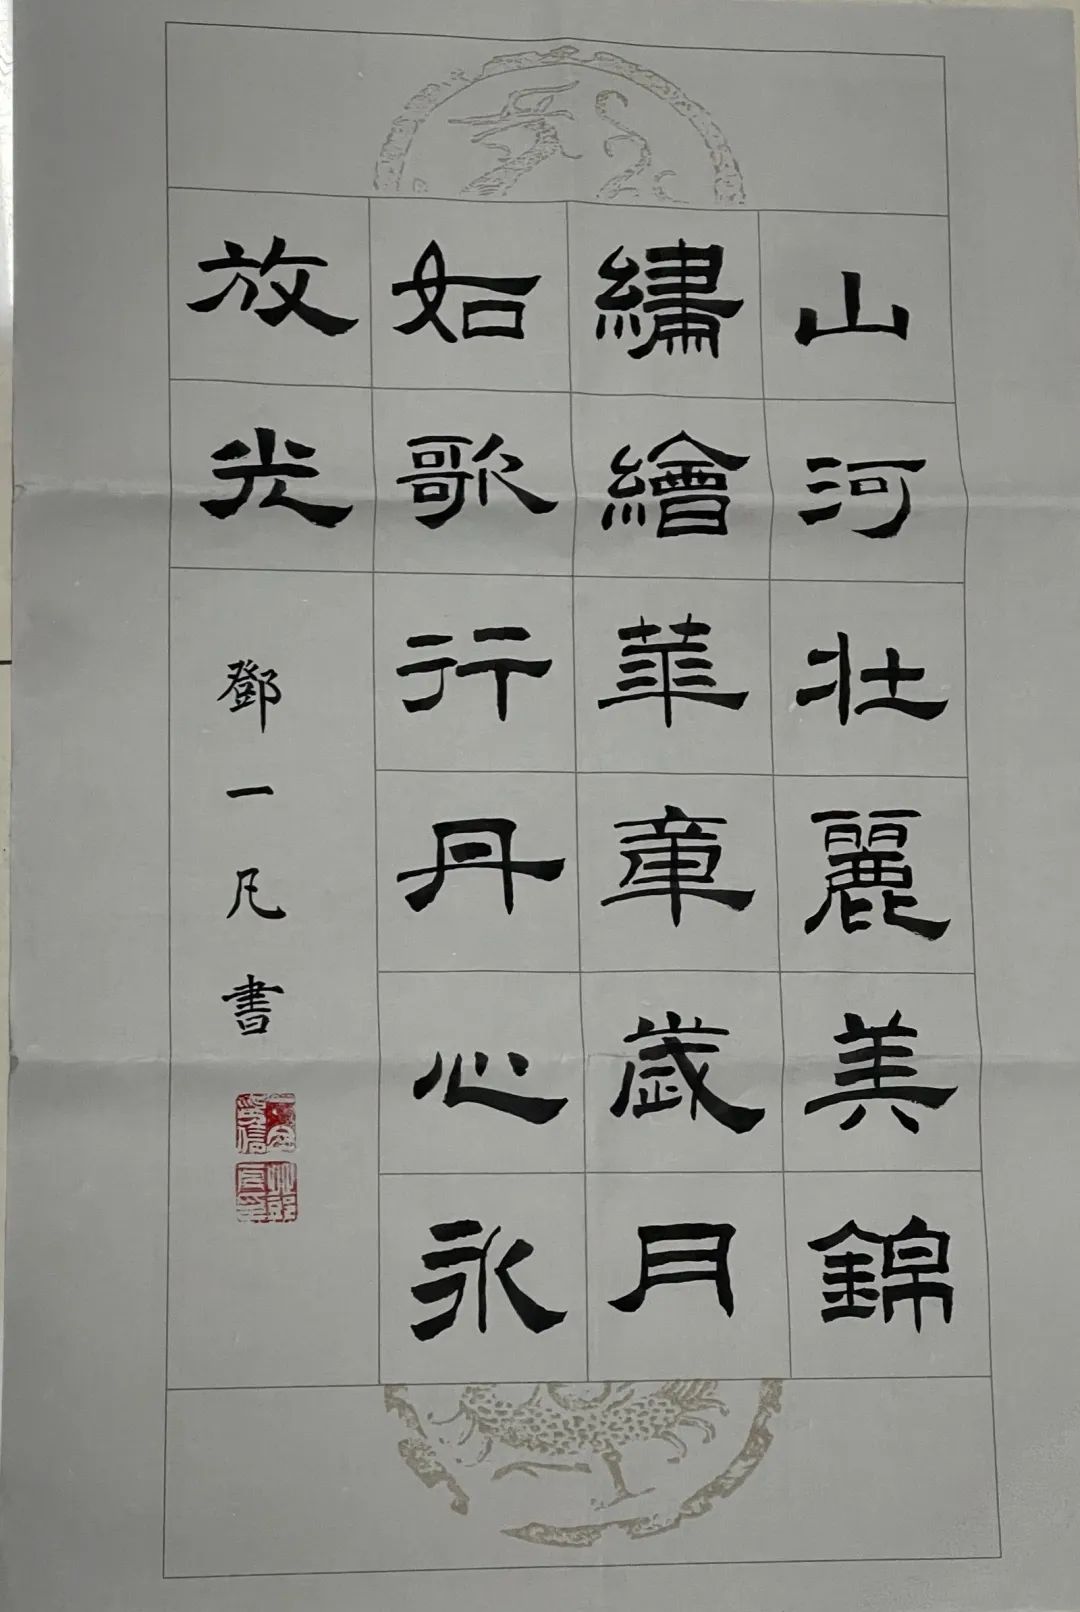 山河壯麗美錦
繡繪華章歲月
如歌行丹心永
放光
鄧一凡書